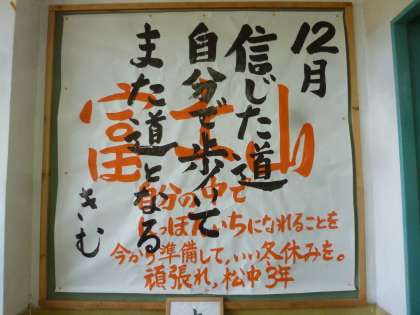 12月
信じた道
自分で歩いて
また道となる
きむ
富士山
自分の中で
にっぽんいちになれることを
今から準備して,いい冬休みを。
頑張れ,松中3年